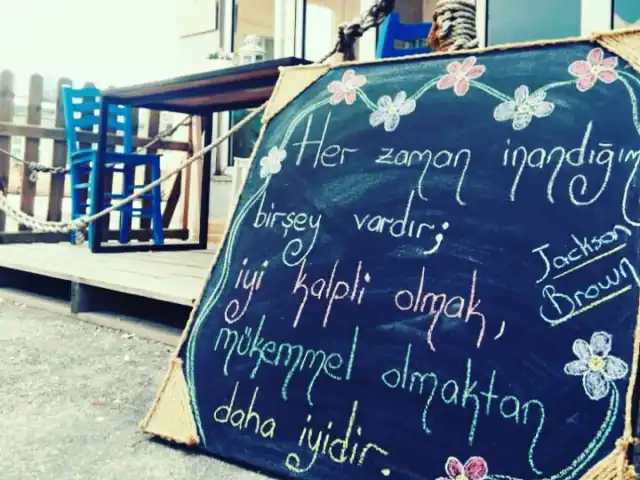 Her zaman inandığım
birşey vardır;
iyi kalpli olmak,
mükemmel olmaktan
daha iyidir.
Jackson
Brown